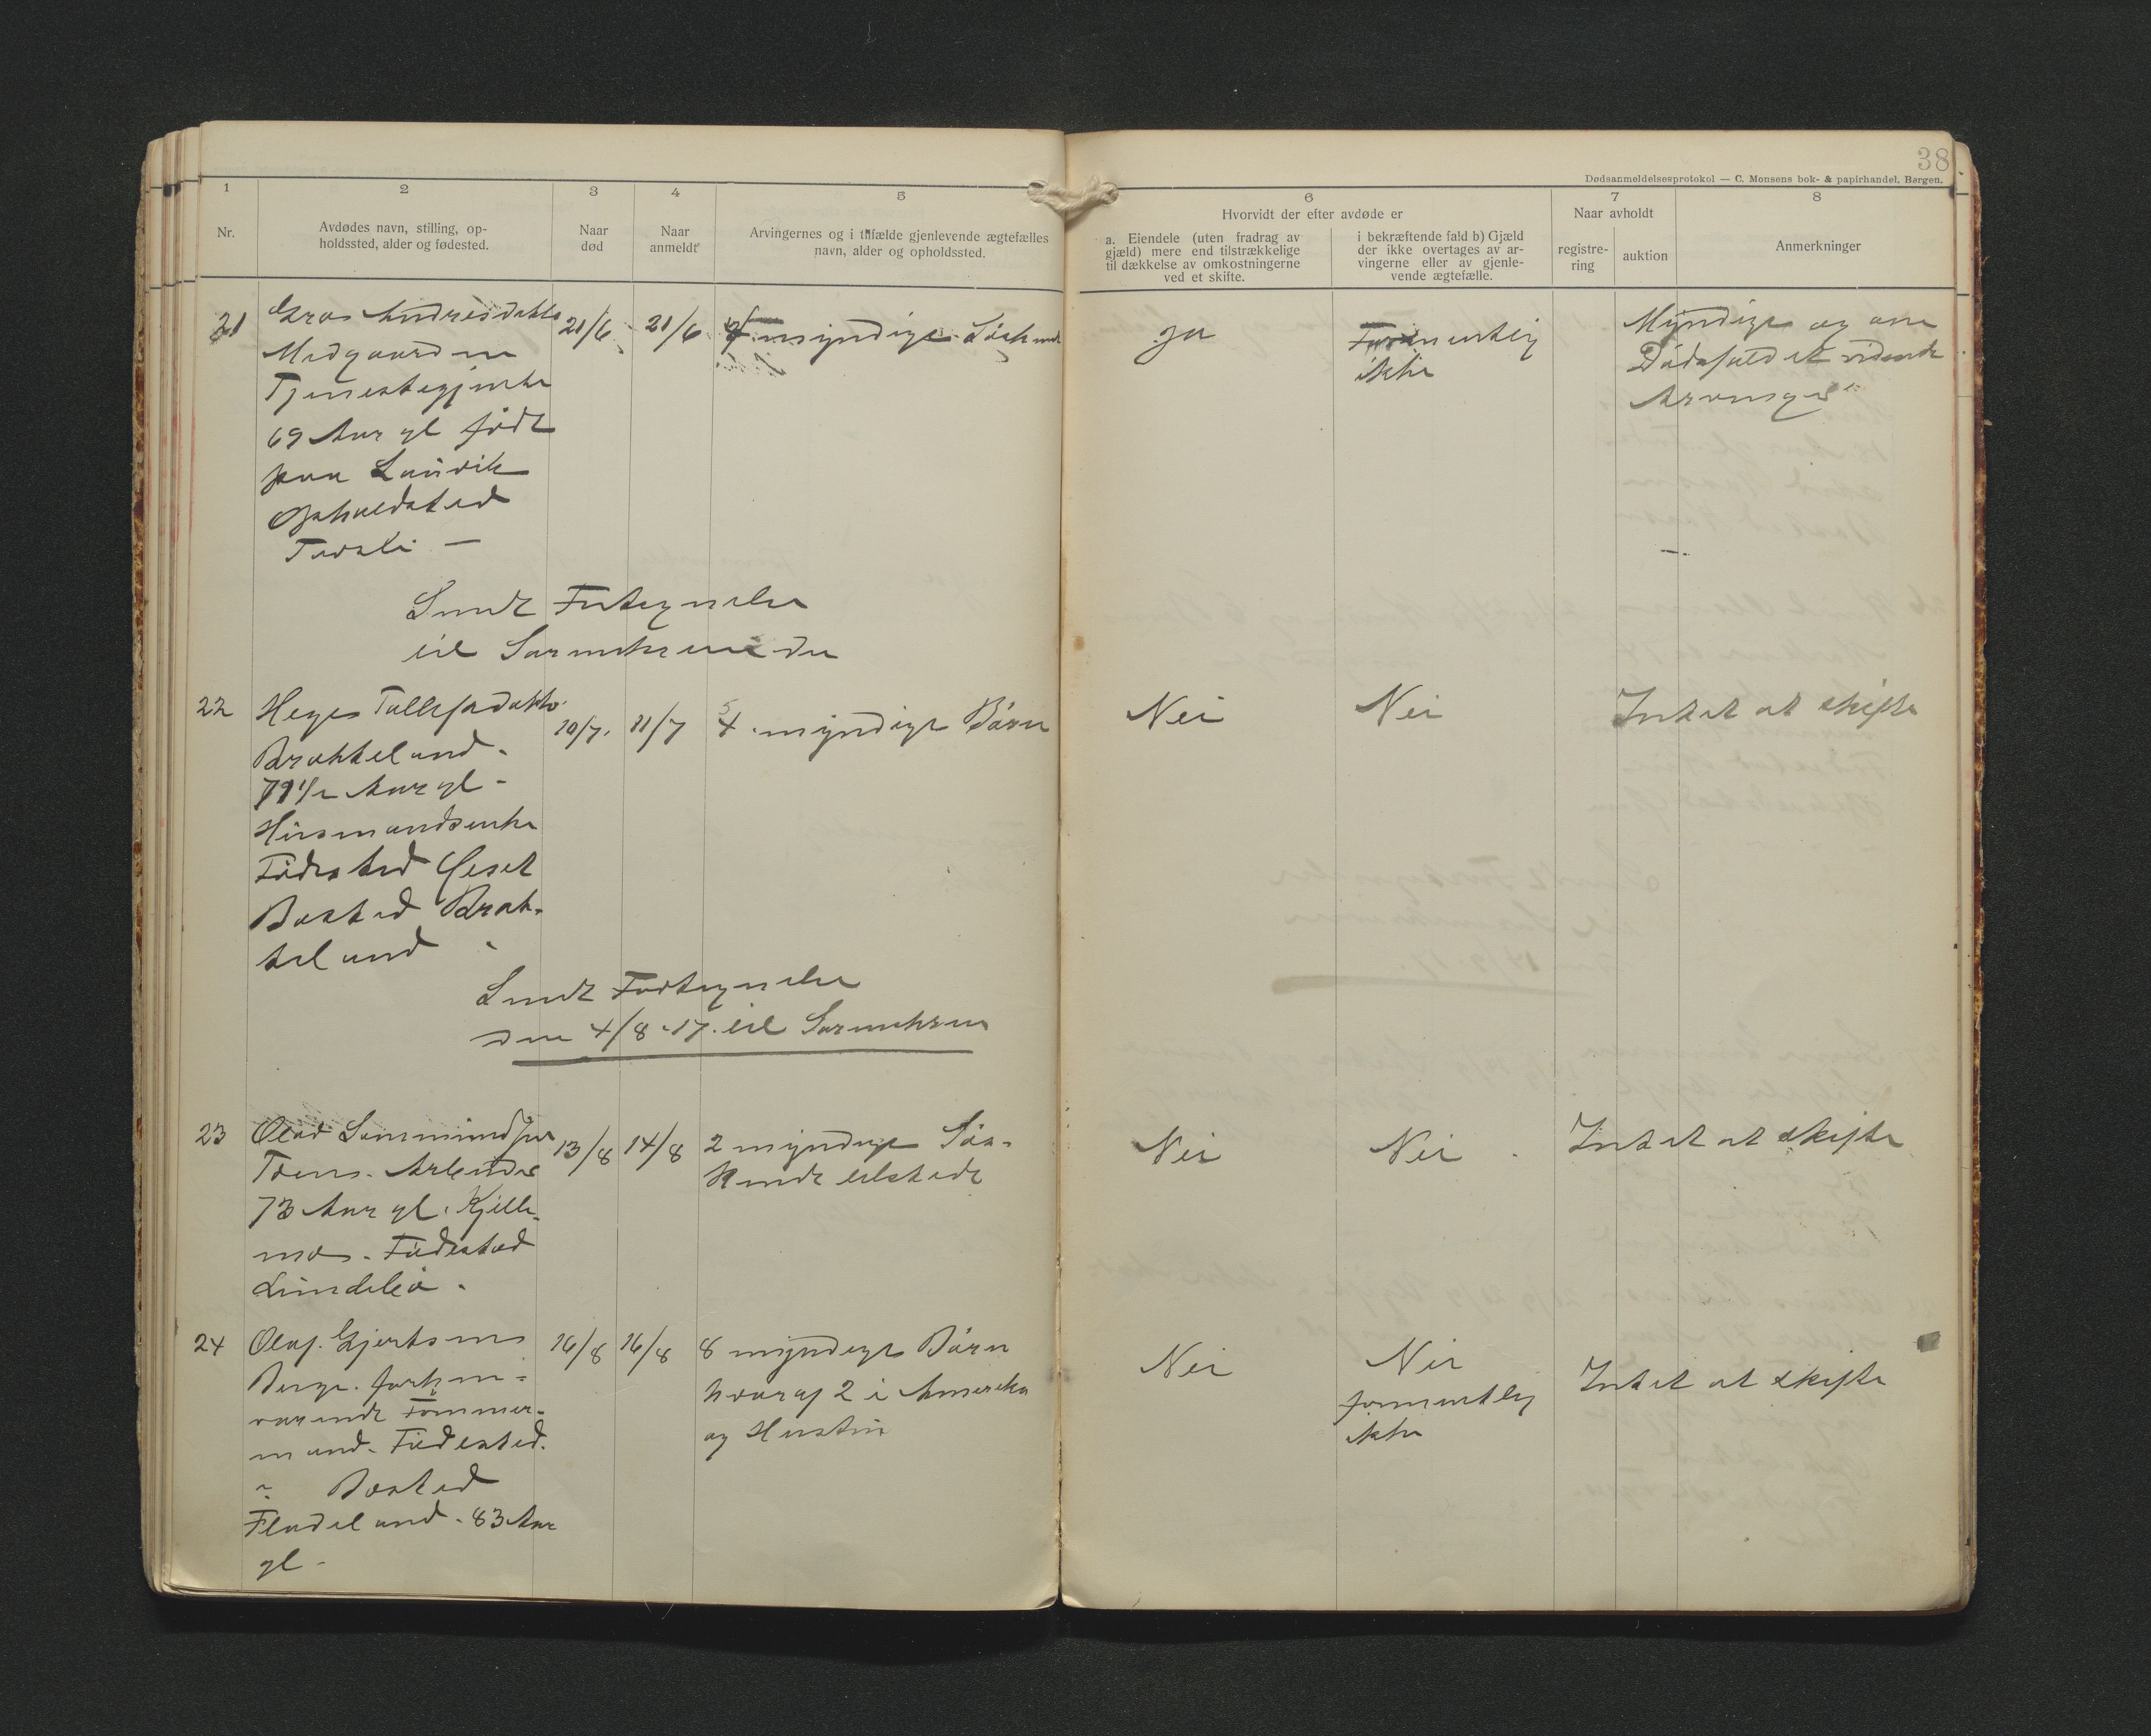 38
Dødsanmeldelsesprotokol — C. Monsens bok- & papirhandel, Bergen.
1
2
3
4
5
6
7
8
Nr.
Avdødes navn, stilling, op-
holdssted, alder og fødested.
Naar
død
Naar
anmeldt
Arvingernes og i tilfælde gjenlevende ægtefælles
navn, alder og opholdssted.
Hvorvidt der efter avdøde er
a. Eiendele (uten fradrag av
gjæld) mere end tilstrækkelige
til dækkelse av omkostningerne
ved et skifte.
i bekræftende fald b) Gjæld
der ikke overtages av ar-
vingerne eller av gjenle-
vende ægtefælle.
Naar avholdt
registre-
ring
auktion
Anmerkninger
21
Gro Andresdatte
Midgaarden
Tjenestegjente
69 Aar gl født
paa
Opholdsted
21/6
21/6
myndige Søskend
Ja
Formentlig
ikke
Myndige og om
Dødsfaldet vidende
Arvinger
Sendt Fortegnelse
til Sorenskriveren
22
Hege Tallefsdatter
Brokkeland.
Aar gl -
Husmandsenke
Fødested
Bosted Brok-
keland
10/7.
11/7
myndige Børn
Nei
Nei
Intet at skifte
Sendt Fortegnelse
den 4/8 - 17. til Sorenskriv
23
Olav
73 Aar gl.
mo. Fødested
13/8
14/8
2 myndige Søs-
kende
Nei
Nei
Intet at skifte
24
Olaf Gjertsen
Berge. forhen-
værende Tømmer-
mand. Fødested.
" Bosted
Fladeland. 83 Aar
gl -
16/8
16/8
8 myndige Børn
hvoraf 2 i Amerika
og Hustru
Nei
Nei
formentlig
ikke
Intet at skifte